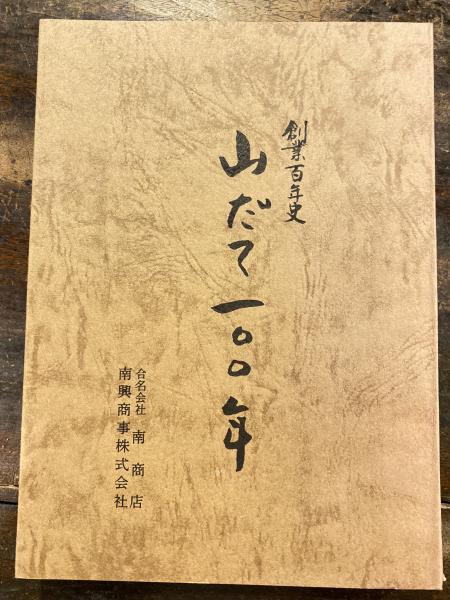 創業百年史
山だて一〇〇年
合名会社 南商店
南興商事株式会社